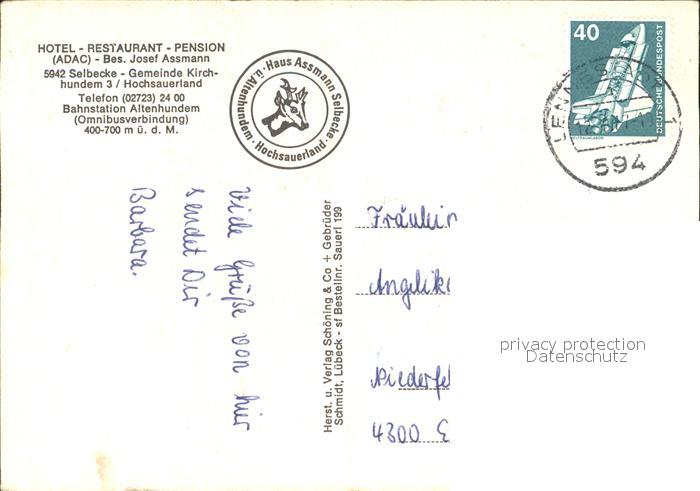 HOTEL - RESTAURANT - PENSION
(ADAC) - Bes. Josef Assmann
5942 Selbecke - Gemeinde Kirch-
hundem 3 / Hochsauerland
Telefon (02723) 24 00
Bahnstation Altenhundem
(Omnibusverbindung)
400-700 m ü. d. M.
Haus Assmann Selbecke
ü. Altenhundem · Hochsauerland ·
40
DEUTSCHE BUNDESPOST
WELTRAUMLABOR
LENNES
594
1
Viele Grüße von hier
sendet Dir
Barbara.
Herst. u. Verlag Schöning & Co + Gebrüder
Schmidt, Lübeck - sf Bestellnr. Sauerl 199
Fräulein
Angelika
Niederfel
4300 E
privacy protection
Datenschutz